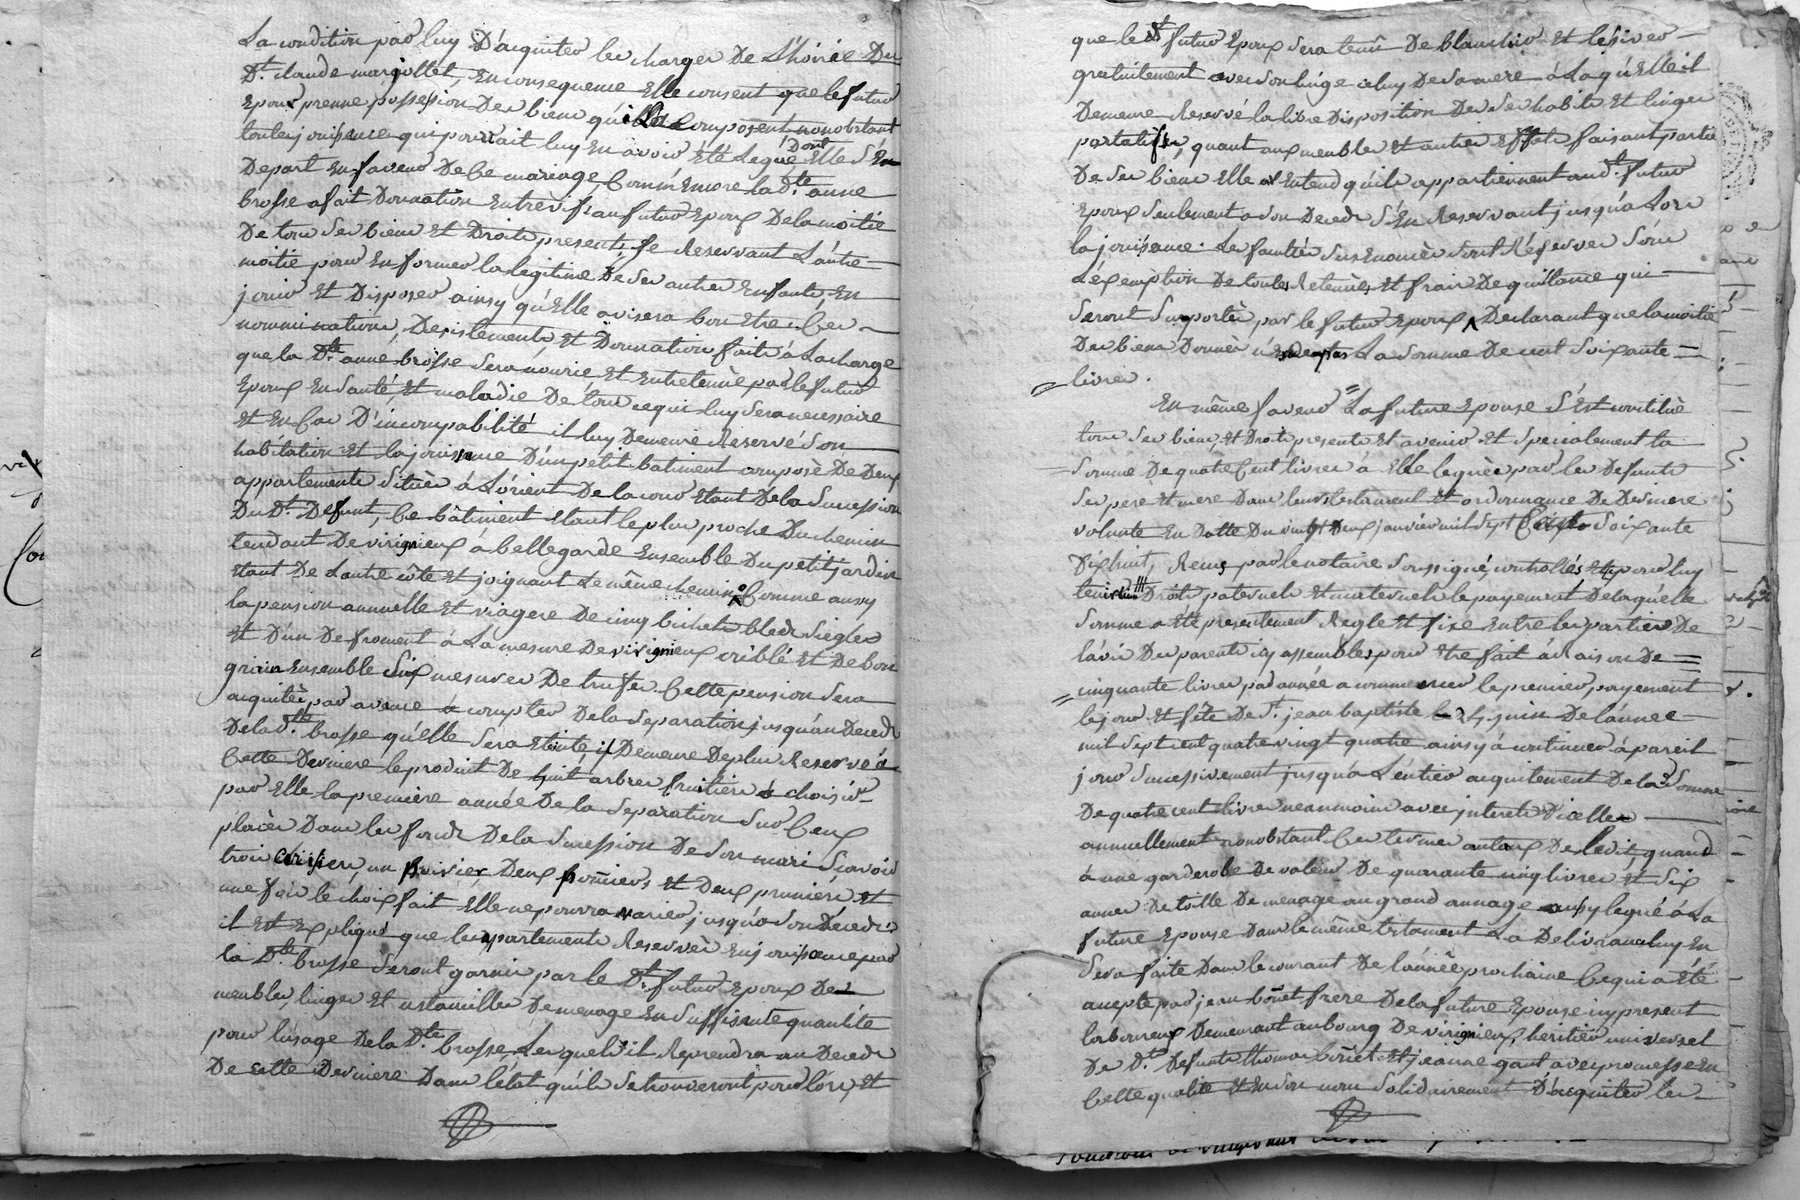 La condition par luy D'acquiter les charges De L'hoirie Du
Dt. claude marjollet, en consequence Elle consent que le futur
Epoux prenne possession Des biens qu'elle Composent nonobstant
toute jouissance qui pourrait luy en avoir été Leguè Dont Elle s'En
Depart En faveur De Ce mariage, Comm'Encore la Dte. anne
brosse a fait Donnation Entrevifs au futur Epoux De la moitié
De tous ses biens et Droits presents, se Reservant L'autre
moitié pour En former la legitime De ses autres Enfants, En
jouir et Disposer ainsy qu'Elle avisera bon Etre. Ces
nomminations, Desistements, et Donnation faits à La charge
que la Dte. anne brosse sera nourie et Entretenue par le futur
Epoux En santé, et maladie De tout ce qui luy sera necessaire
et En Cas D'incompabilité il luy Demeure Reservé son
habitation et la jouissance D'un petit batiment composé De Deux
appartements Situés à L'orient De la cour Etant De la Succession
Du Dt. Defunt, Ce bâtiment Etant le plus proche Du chemin
tendant De virignieux à bellegarde Ensemble Du petit jardin
Etant De L'autre côté et joignant Le même chemin Comme aussy
la pension annuelle et viagere De cinq bichets bled Seigle
et D'un De froment à La mesure De virignieux criblé et De bon
grain Ensemble Six mesures De trufes Cette pension sera
acquitée par avance à compter De la Separation jusqu'au Decede
De la Dte. brosse qu'elle Sera Eteinte, il Demeure De plus Reservé à
Cette Derniere le produit De huit arbres fruitiers à choisir
par Elle la premiere année De la Separation sur Ceux
placés Dans les fonds De la Succession De Son mari Scavoir
trois cerisiers, un poirier, Deux pomiers, et Deux pruniers et
une fois le choix fait Elle ne pourra varier jusqu'à Son Décede
il Est Expliqué que les apartements Reservés En jouissance par
la Dte. brosse Seront garnis par le Dt. futur Epoux De
meubles linges et ustancilles De menage En Suffisante quantité
pour l'usage De la Dte. brosse, Lesquels il Reprendra au Decede
De cette Derniere Dans l'état qu'ils Se trouveront pour lors, et
que le Dt. futur Epoux Sera tenu De blanchir et lesiver
gratuitement avec son linge celuy De sa mere à Laquelle il
Demeure Reservé la libre Disposition De Ses habits et linges
portatifs, quant aux meubles et autres Effets faisant partie
De Ses biens Elle Entend qu'ils appartiennent au Dt. futur
Epoux Seulement a Son Decede S'En Reservant jusqu'à Lors
la jouissance. Les facultés Susenoncées sont Réserver Sous
L'éxemption De toutes Retenues et frais De quittance qui
Seront Suportés par le futur Epoux Declarant que la moitié
Des biens Donnés n'Excede pas La Somme De cent Soixante
livres.
En même faveur La future Epouse S'Est constitué
tous Ses biens, et Droits presents et avenir et Specialement la
Somme De quatre Cent livres à Elle leguée par les Defunts
Ses pere et mere Dans leurs testament et ordonnance De Derniere
volonte En Datte Du vingt Deux janvier mil Sept Cents Soixante
Dixhuit, Reçus par le notaire Soussigné, controllés et pour luy
tenir lieu Droits paternels et maternels le payement De laquelle
Somme a été presentement Regle et fixe Entre les parties De
l'avis Des parents icy assembles pour Etre fait à Raison De
cinquante livres par année a commencer le premier payement
le jour et fête De St. jean baptiste 24 juin De l'année
mil Sept cent quatre vingt quatre ainsy à continuer à pareil
jour Successivement jusqu'à L'éntier acquitement De la Somme
De quatre cent livres neanmoins avec interets D'icelle
annuellement nonobstant Ces termes au taux De l'edit, quand
à une garderobe De valeur De quarante cinq livres et Six
aunes De toille De menage au grand aunage aussy legué à La
future Epouse Dans le même testament La Delivrance luy En
Sera faite Dans le courant De l'année prochaine Ce qui a Eté
accepté par jean bônet frere De la future Epouse icy present
laboureur Demeurant au bourg De virignieux, heritier universel
De Dt. Defunts thomas bônet et jeanne gont avec promesse En
Cette qualité et En Son nom Solidairement D'acquiter les